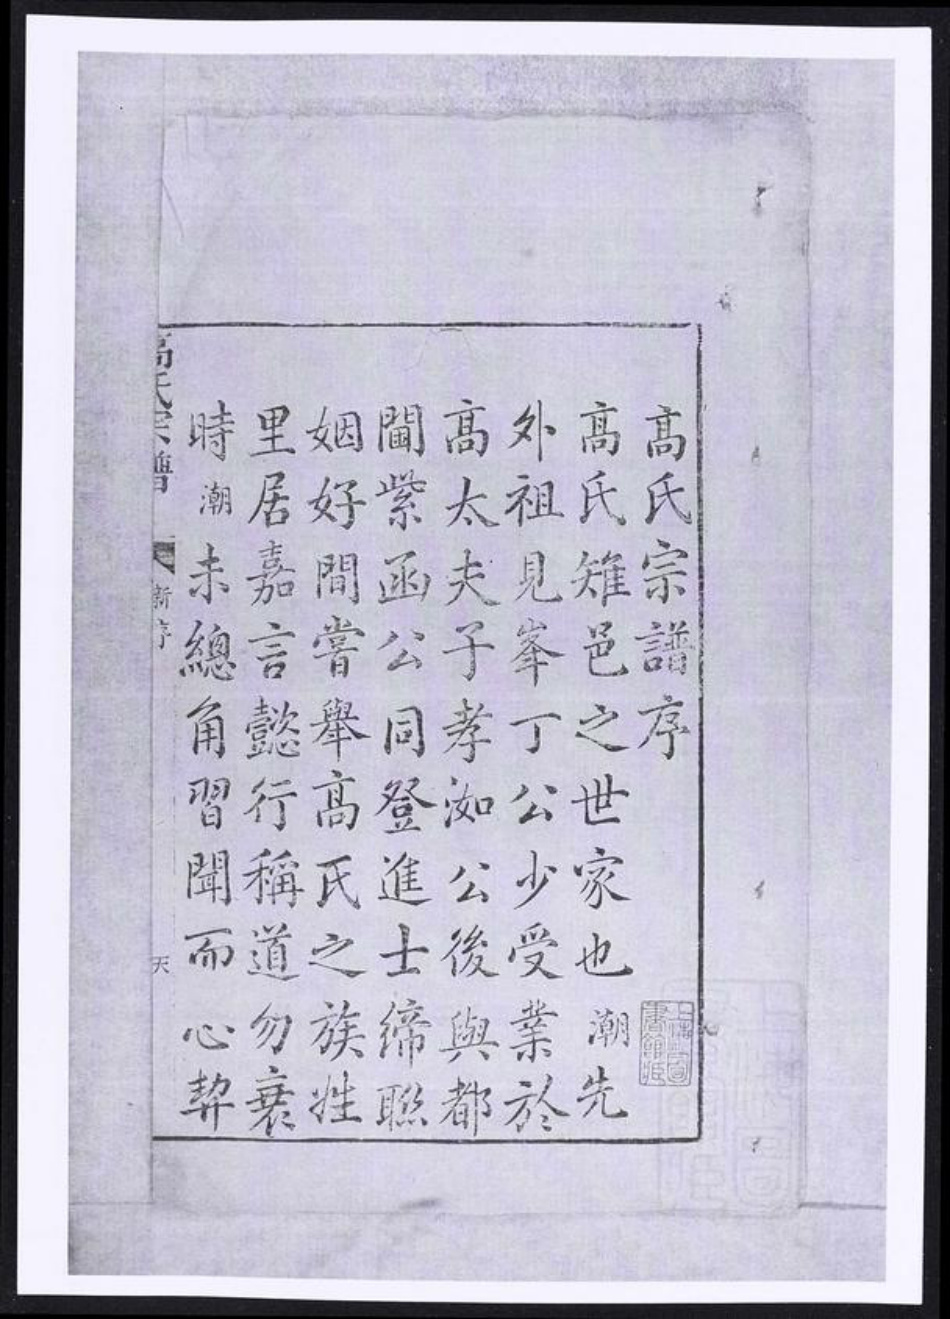 高氏宗譜序
高氏雉邑之世家也潮先
外祖見峯丁公少受業於
高太夫子孝洳公後與都
閫紫函公同登進士締聯
姻好間嘗舉高氏之族姓
里居嘉言懿行稱道勿衰
時潮未總角習聞而心契
高氏宗譜
新序
天